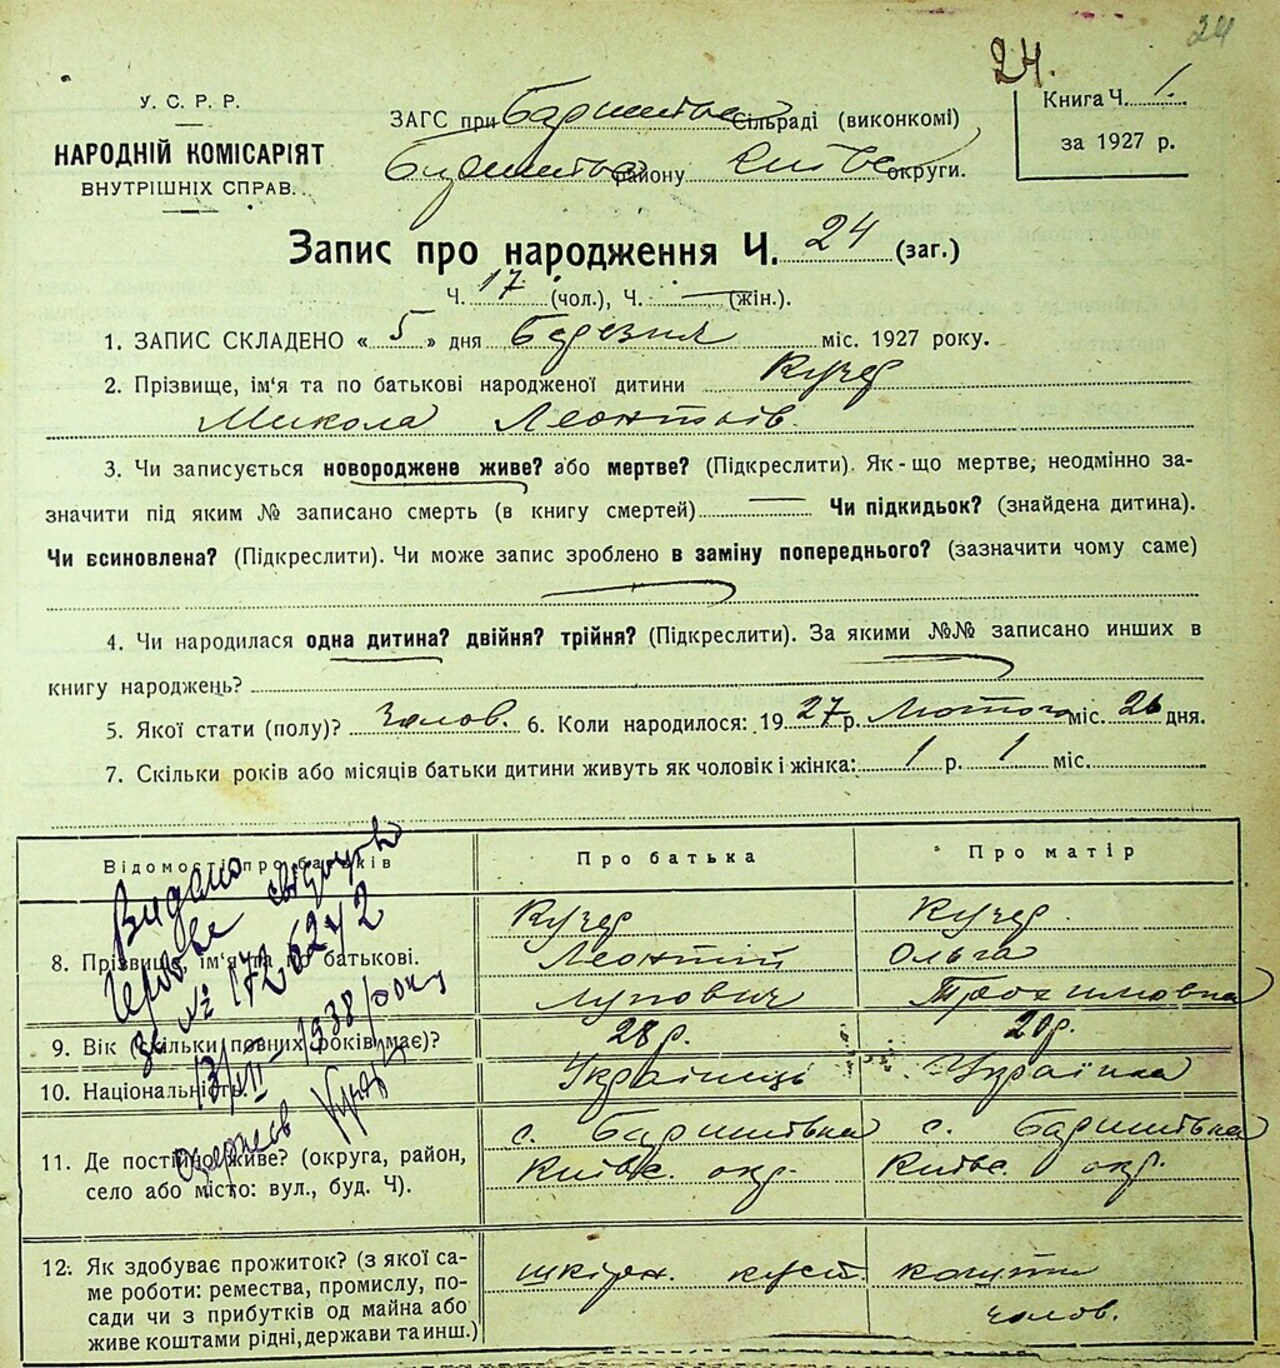 24
24.
У. С. Р. Р.
НАРОДНІЙ КОМІСАРІЯТ
ВНУТРІШНІХ СПРАВ.
ЗАГС при Баришівськ Сільраді (виконкомі)
Баришівськ району Київськ округи.
Книга Ч. 1.
за 1927 р.
Запис про народження Ч. 24 (заг.)
Ч. 17 (чол.), Ч. — (жін.).
1. ЗАПИС СКЛАДЕНО « 5 » дня Березня міс. 1927 року.
2. Прізвище, ім'я та по батькові народженої дитини Кучер
Микола Леонтіїв.
3. Чи записується новороджене живе? або мертве? (Підкреслити). Як-що мертве, неодмінно за-
значити під яким № записано смерть (в книгу смертей) — Чи підкидьок? (знайдена дитина).
Чи всиновлена? (Підкреслити). Чи може запис зроблено в заміну попереднього? (зазначити чому саме)
4. Чи народилася одна дитина? двійня? трійня? (Підкреслити). За якими №№ записано инших в
книгу народжень?
5. Якої стати (полу)? Чолов. 6. Коли народилося: 1927 р. Лютого міс. 26 дня.
7. Скільки років або місяців батьки дитини живуть як чоловік і жінка: 1 р. 1 міс.
Відомості про батьків
Про батька
Про матір
8. Прізвище, ім'я та по батькові.
Кучер
Леонтій
Лупович
Кучер.
Ольга
Трохимовна
9. Вік (скільки повних років має)?
28 р.
20 р.
10. Національність.
Українець
Українка
11. Де постійно живе? (округа, район,
село або місто: вул., буд. Ч).
с. Баришівка
Київс. окр.
с. Баришівка
Київс. окр.
12. Як здобуває прожиток? (з якої са-
ме роботи: ремества, промислу, по-
сади чи з прибутків од майна або
живе коштами рідні, держави та инш.)
шкірн. куст.
кошти
чолов.
Видано
свідоцтво
за № 1726272
13/VII 1938 року